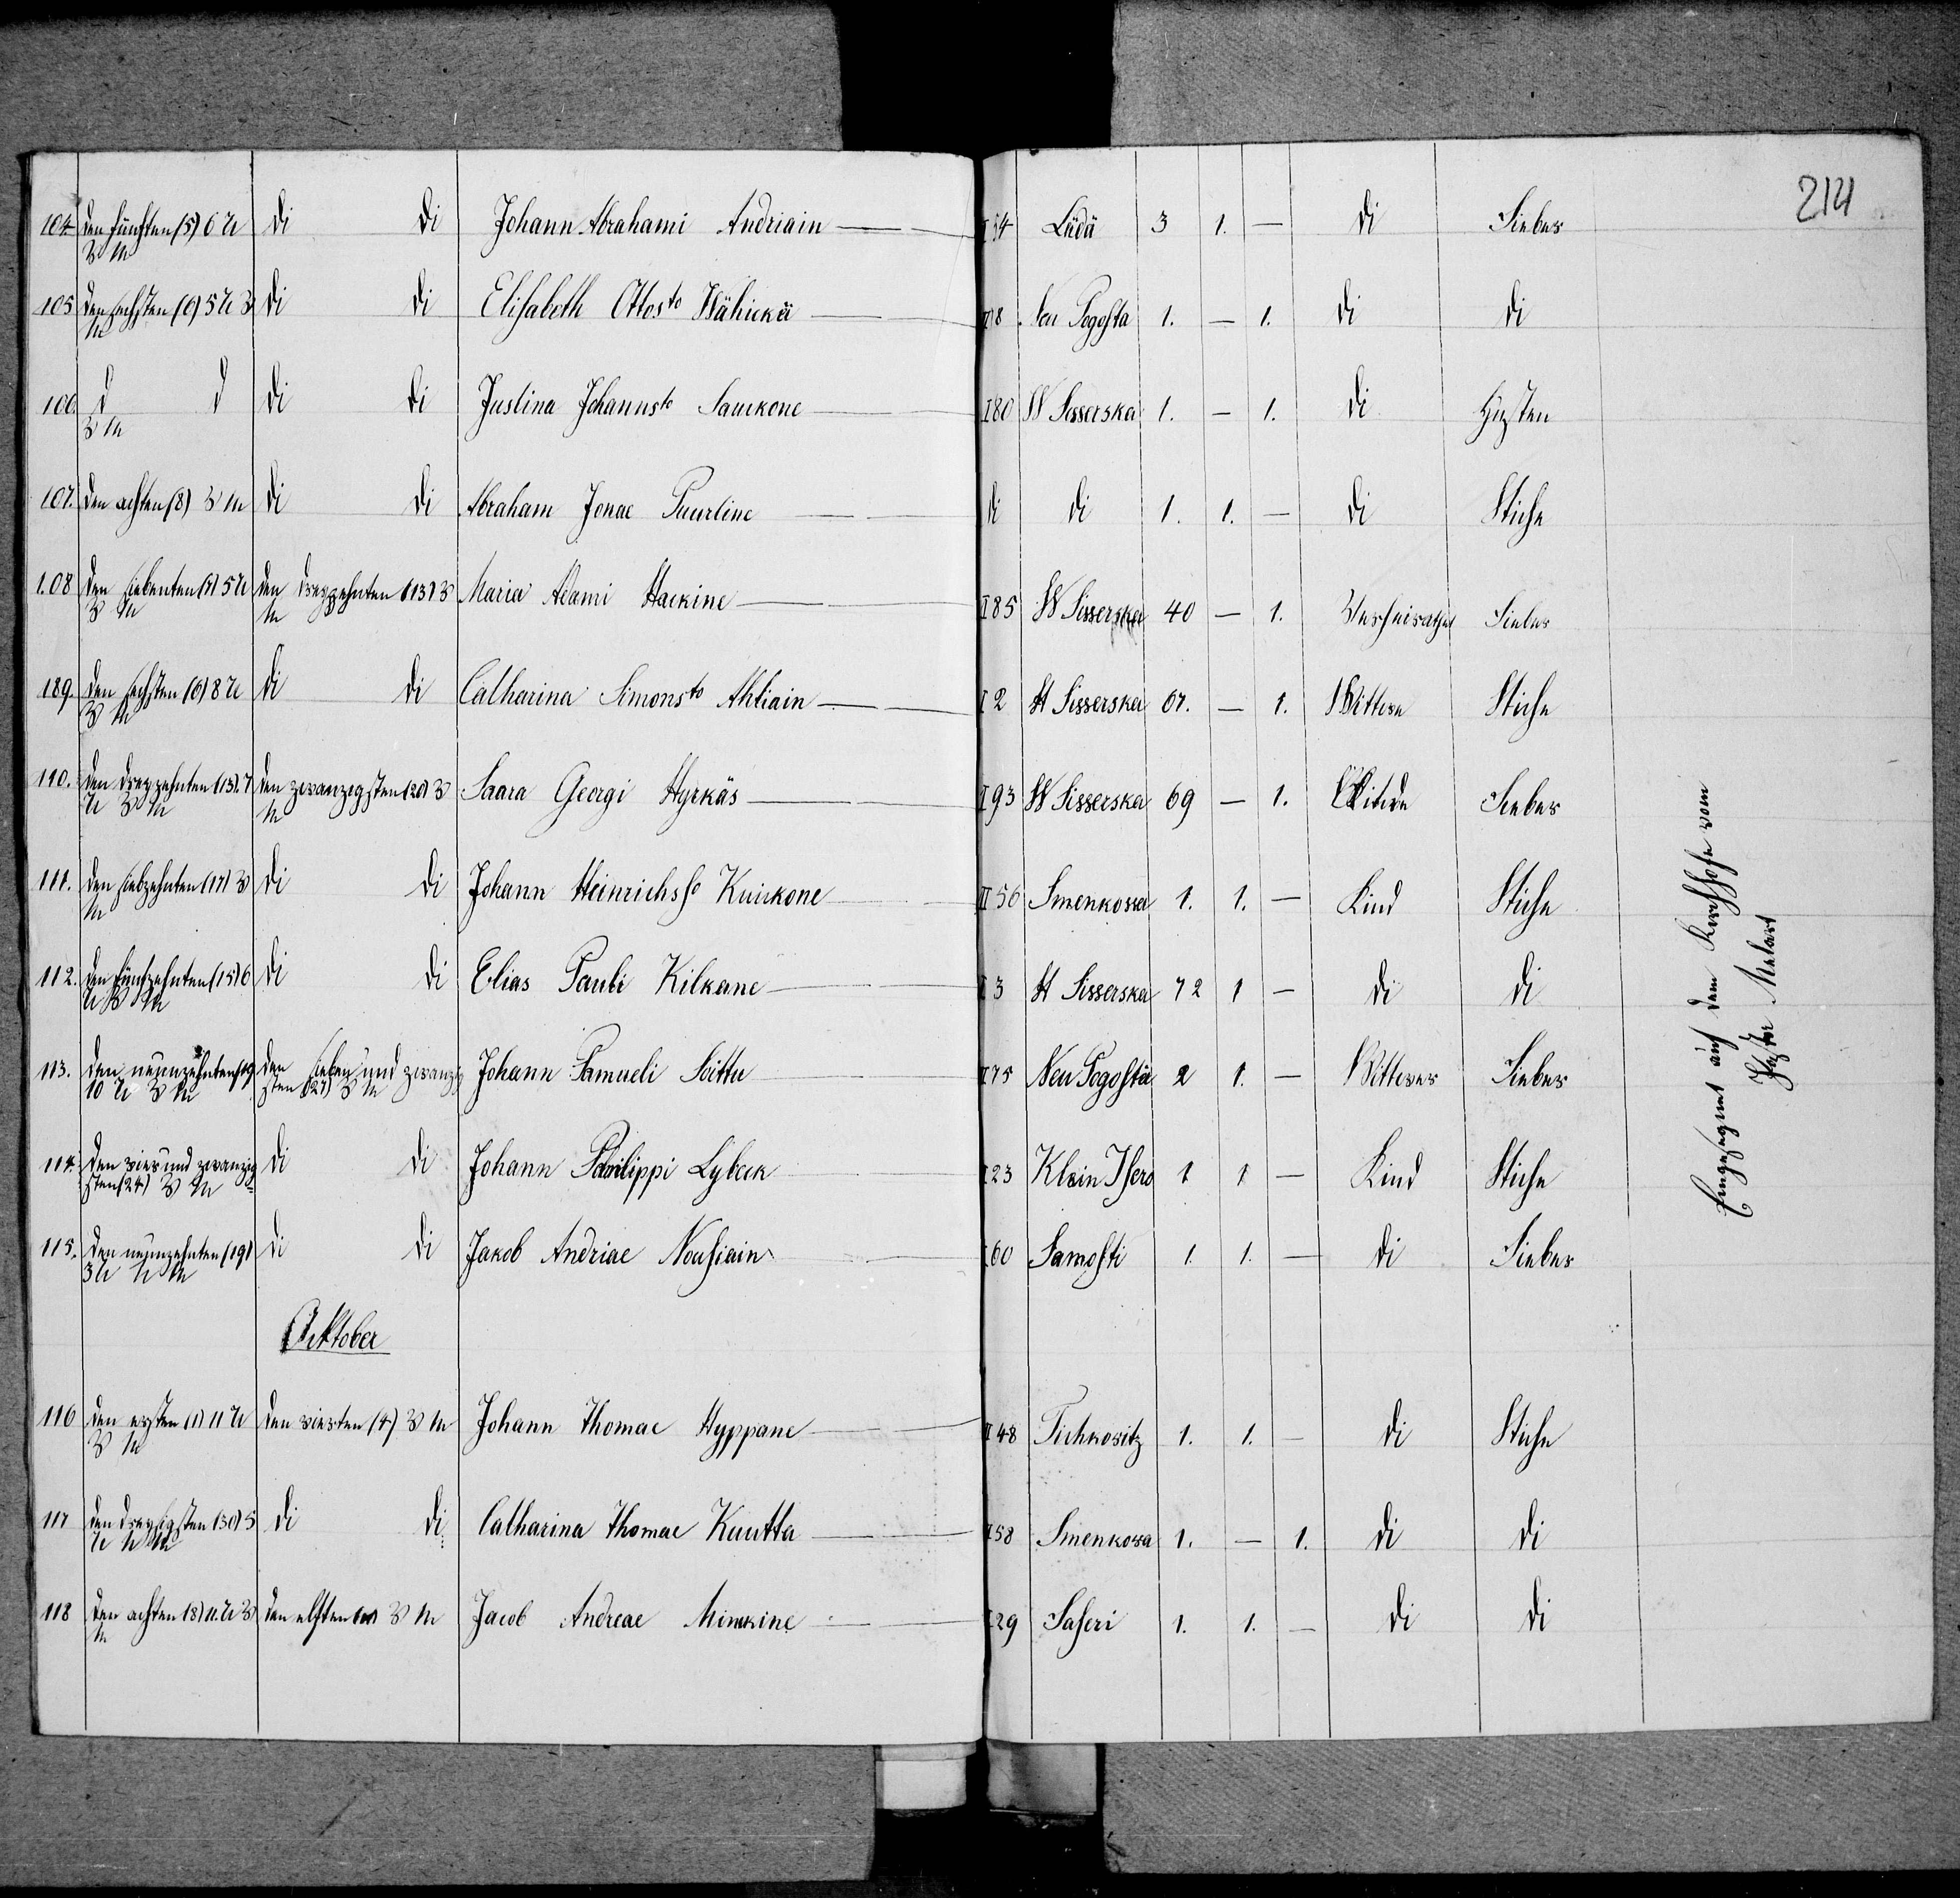 214
104. den fünften (5) 6 U di di Johann Abrahami Andriain I 54 Lädä 3 1. — di Fieber
V M
105 den sechsten (6) 5 U V di di Elisabeth Ottos to Wähickä II 8 Neu Pogosta 1. — 1. di di
M
106. d d di di Justina Johanns to Saukone I 80 W Sisserska 1. — 1. di Husten
V M
107. den achten (8) V M di di Abraham Jonae Puurtine di di 1. 1. — di Stiche
108 den siebenten (7) 5 U den dreyzehnten (13) V Maria Adami Hackine I 85 W Sisserska 40 — 1. Verheirathet Fieber
V M M
189. den sechsten (6) 8 U di di Catharina Simons to Ahtiain I 2 H Sisserska 67. — 1. Wittwe Stiche
V M
110. den dreyzehnten (13). 7 den zwanzigsten (20) V Saara Georgi Hyrkäs I 93 W Sisserska 69 — 1. Wittwe Fieber
U V M M
111. den siebzehnten (17) V di di Johann Heinrichs so Kuikone II 56 Smenkowa 1. 1. — Kind Stiche
M
112. den fünfzehnten (15) 6 di di Elias Pauli Kilkane I 3 H Sisserska 72 1 — di di
U V M
113. den neunzehnten (19) den sieben und zwanzig Johann Samueli Soittu I 75 Neu Pogosta 2 1. — Wittwer Fieber
10 U V M sten (27) V M
114. den vier und zwanzig di di Johann Philippi Lybeck I 23 Klein Isero 1 1 — Kind Stiche
sten (24) V M
115. den neunzehnten (19) di di Jakob Andriae Nousiain I 60 Samosti 1. 1. — di Fieber
3 U N M
Oktober
116 den ersten (1) 11 U den vierten (4) V M Johann Thomae Hyppane II 48 Tichkowitz 1. 1. — di Stiche
V M
117 den dreyßigsten (30) 5 di di Catharina Thomae Kuutta I 58 Smenkowa 1. — 1. di di
U N M
118 den achten (8) 11. U V den elften (11) V M Jacob Andreae Minkine I 29 Saseri 1. 1. — di di
M
Eingesegnet auf dem Kirchhofe vom
Küster Melart